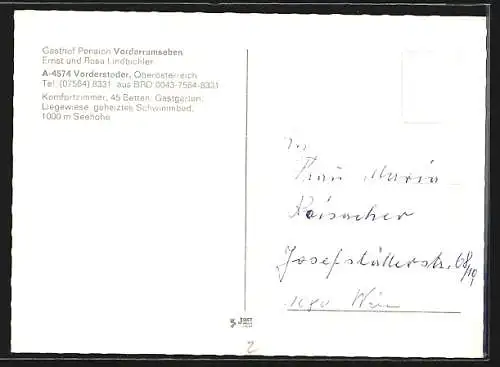 Gasthof Pension Vorderramseben
Ernst und Rosa Lindbichler
A-4574 Vorderstoder, Oberösterreich
Tel. (07564) 8331 aus BRD 0043-7564-8331
Komfortzimmer, 45 Betten, Gastgarten,
Liegewiese, geheiztes Schwimmbad,
1000 m Seehöhe
Frau Maria
Raisacher
Josefstädterstr. 68/19
1080 Wien
2